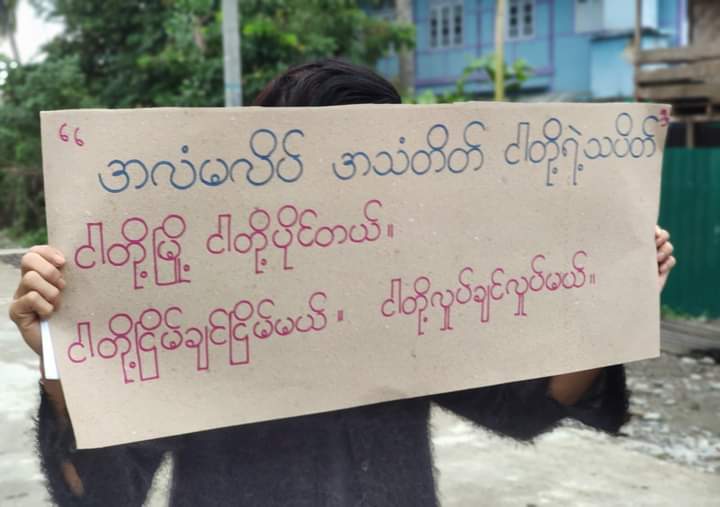 “ အလံမလိပ် အသံတိတ် ငါတို့ရဲ့သပိတ် ”
ငါတို့မြို့ ငါတို့ပိုင်တယ်။
ငါတို့ငြိမ်ချင်ငြိမ်မယ်။ ငါတို့လှုပ်ချင်လှုပ်မယ်။